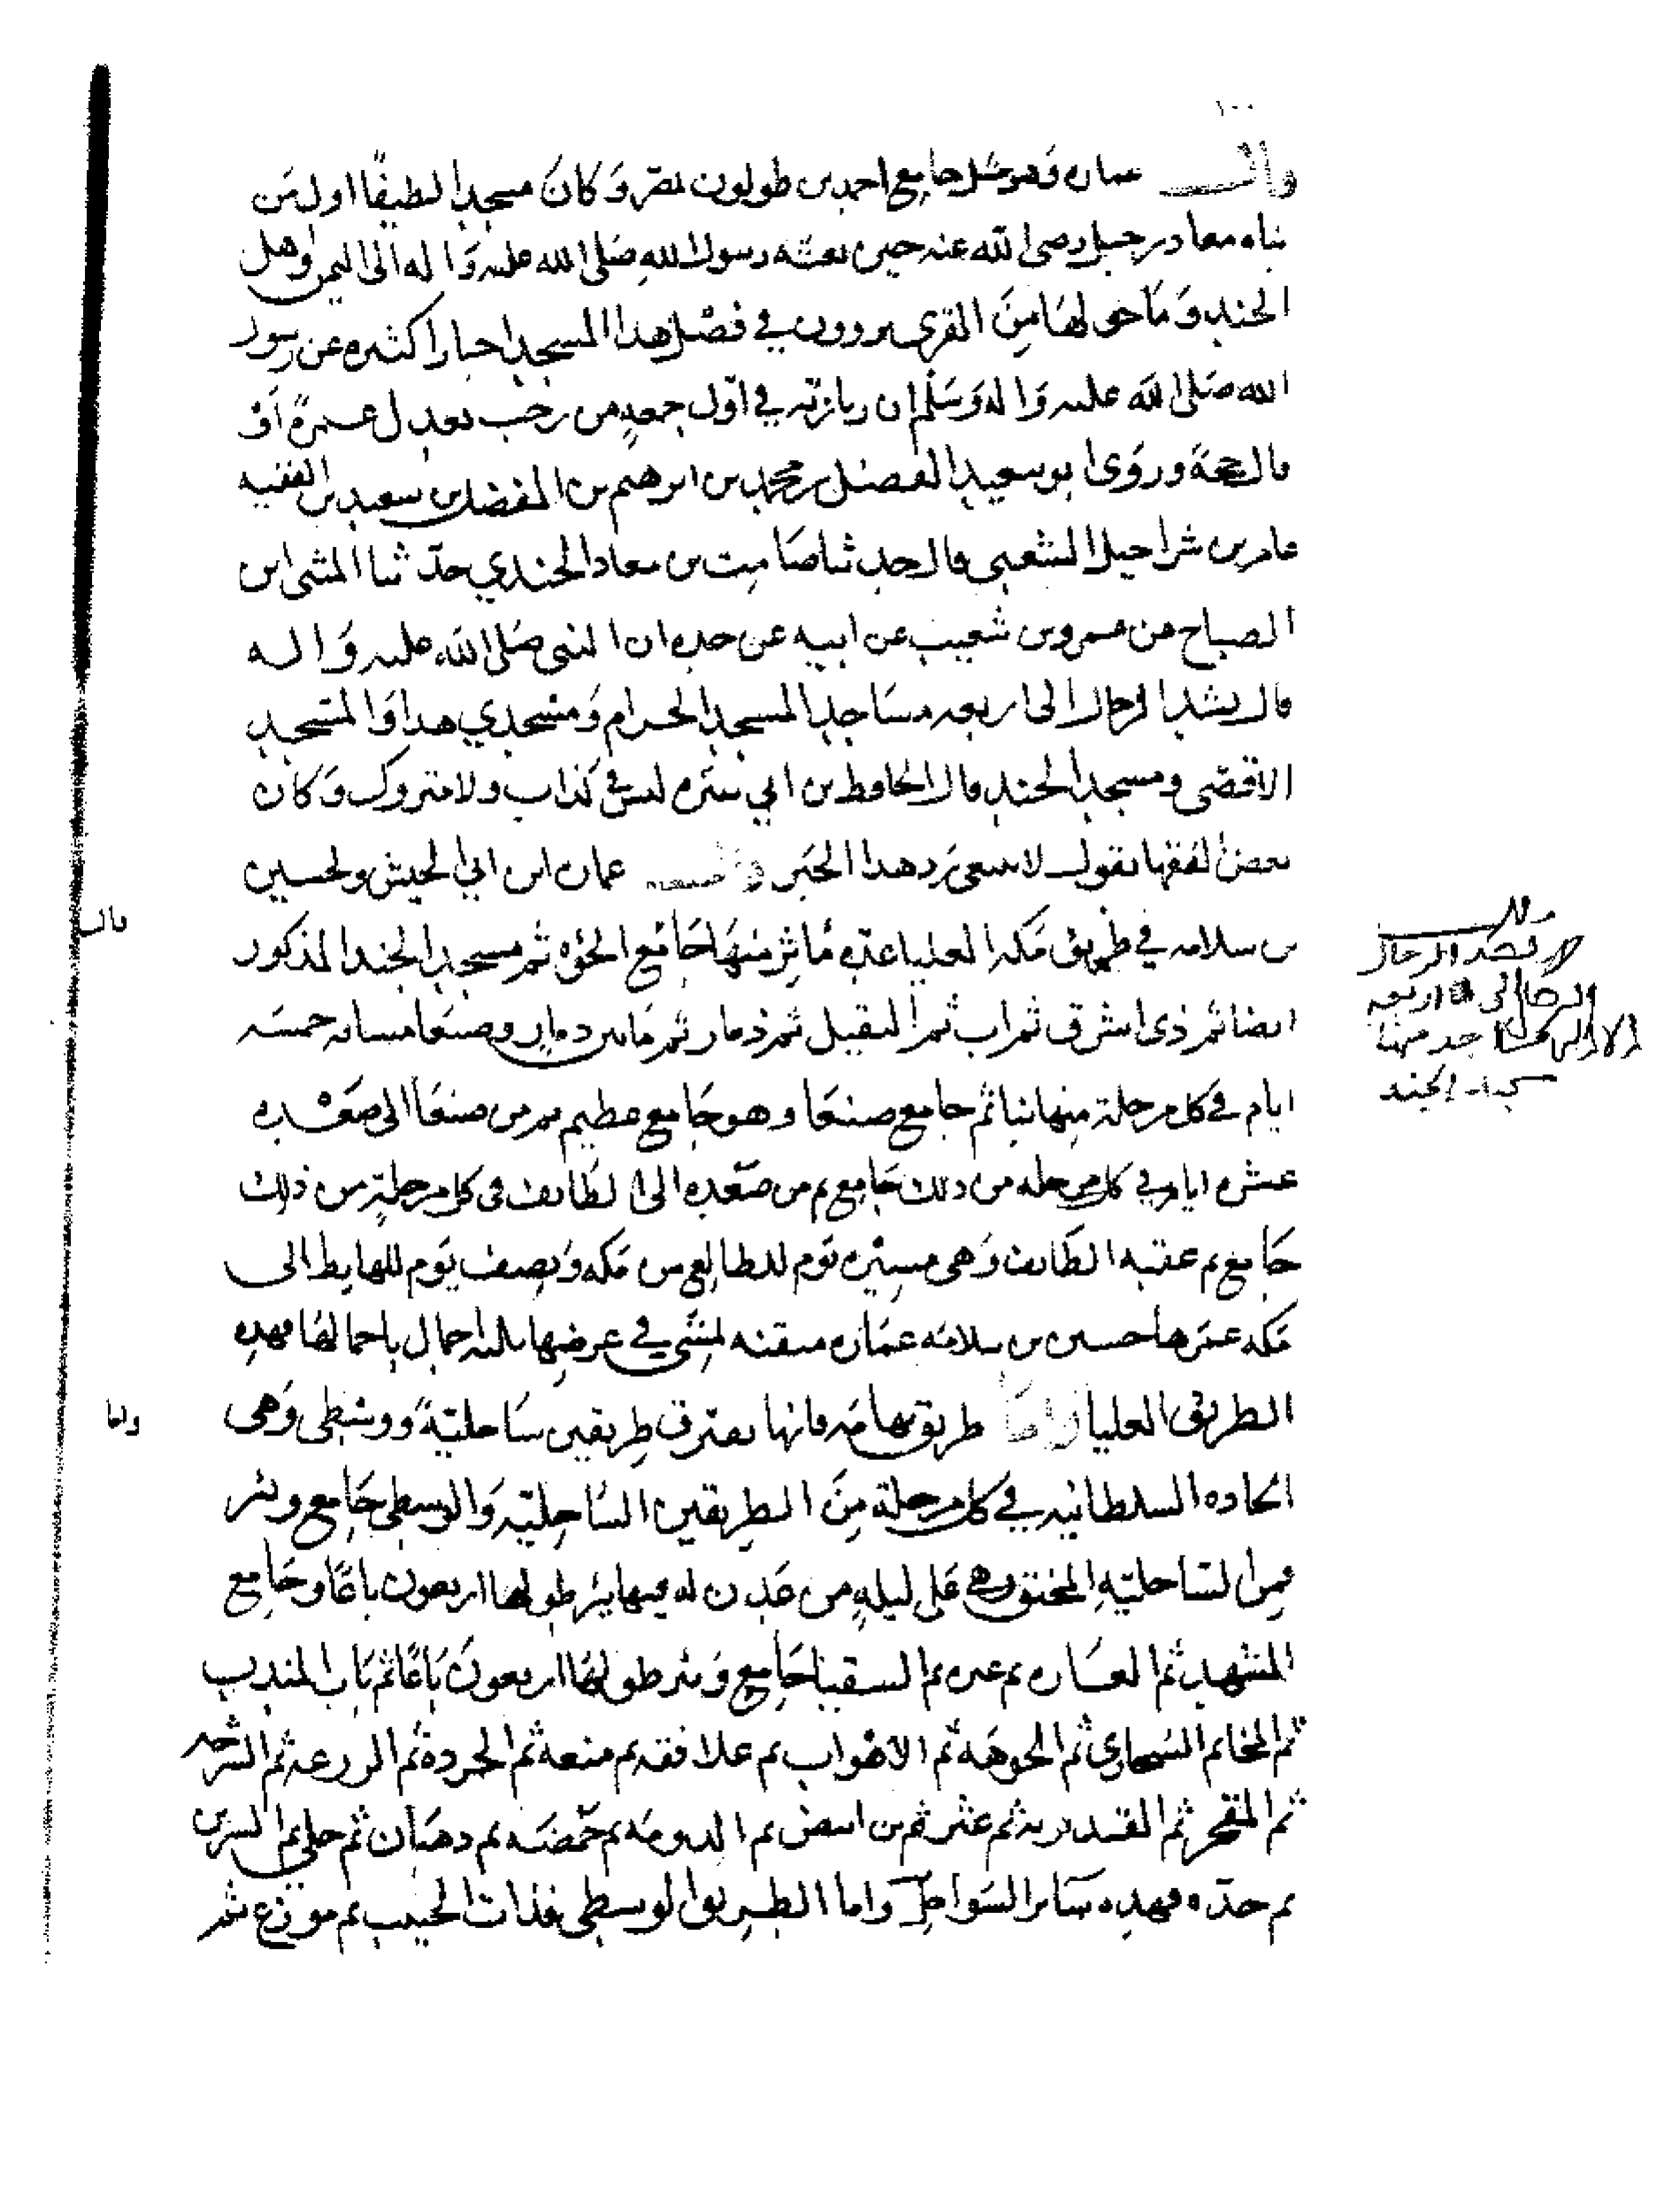 ١٠٠
وقال عمان وهو مثل جامع احمد بن طولون بمصر وكان مسجدا لطيفا اول من
بناه معاذ بن جبل رضي الله عنه حين بعثه رسول الله صلى الله عليه واله الى اليمن واهل
الجند وما حولها من القرى يروون في فضل هذا المسجد اخبارا كثيره عن رسول
الله صلى الله عليه واله وسلم ان زيارته في اول جمعة من رجب تعدل عمرة او
قال حجة وروى ابو سعيد المفضل بن محمد بن ابرهيم بن المفضل بن سعيد بن الفقيه
عامر بن شراحيل الشعبي قال حدثنا صامت بن معاذ الجندي حدثنا المثنى ابن
الصباح عن عمرو بن شعيب عن ابيه عن جده ان النبي صلى الله عليه واله
قال يشد الرحال الى اربعه مساجد المسجد الحرام ومسجدي هذا والمسجد
الاقصى ومسجد الجند قال الحافظ بن ابي ميسره ليس في كذاب ولا متروك وكان
بعض الفقها يقول لا ينبغي رد هذا الخبر عمان ابن ابي الجيش ولحسين
بن سلامه في طريق مكه العليا عدة مآثر منها جامع الجؤه ثم مسجد الجند المذكور
ايضا ثم ذي اشرق ثم اب ثم النقيل ثم ذمار ثم مابين ذمار وصنعا مسافه خمسه
ايام في كل مرحلة منها بنا ثم جامع صنعا وهو جامع عظيم ثم من صنعا الى صعده
عشره ايام في كل مرحله من ذلك جامع ثم من صعده الى الطائف في كل مرحلة من ذلك
جامع ثم عقبه الطائف وهي مسيره يوم للطالع من مكه ونصف يوم للهابط الى
مكه عمرها حسين بن سلامه عماره متقنه يمشي في عرضها ثلثه اجمال باحمالها فهذه
الطريق العليا واما طريق تهامه فانها تفترق طريقين ساحلية ووسطى وهي
الجاده السلطانيه في كل مرحلة من الطريقين الساحلية والوسطى جامع وبئر
فمن الساحلية المخنق وهي على ليلة من عدن له فيها بئر طولها اربعون باعا وجامع
المشهد ثم العاره ثم عبره ثم السقيا جامع وبئر طولها اربعون باعا ثم باب المندب
ثم المخا ثم السحاري ثم الخوهه ثم الاهواب ثم غلافقه ثم منعه ثم الحرده ثم الزرعه ثم الشرجه
ثم المفجر ثم القنديديه ثم عثر ثم بن ابيض ثم الدويمه ثم حمضه ثم دهبان ثم حلي ثم السرين
ثم جده فهذه سائر السواحل واما الطريق الوسطى فذات الخبيت ثم موزع ثم
قال
واما
لا تشد الرحال
الرحال الى اربعه
مساجد منها
مسجد الجند